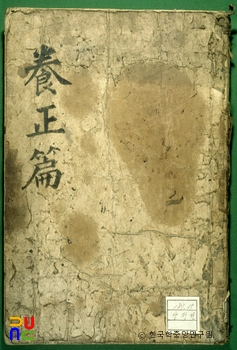 養正篇
한국학중앙연구원